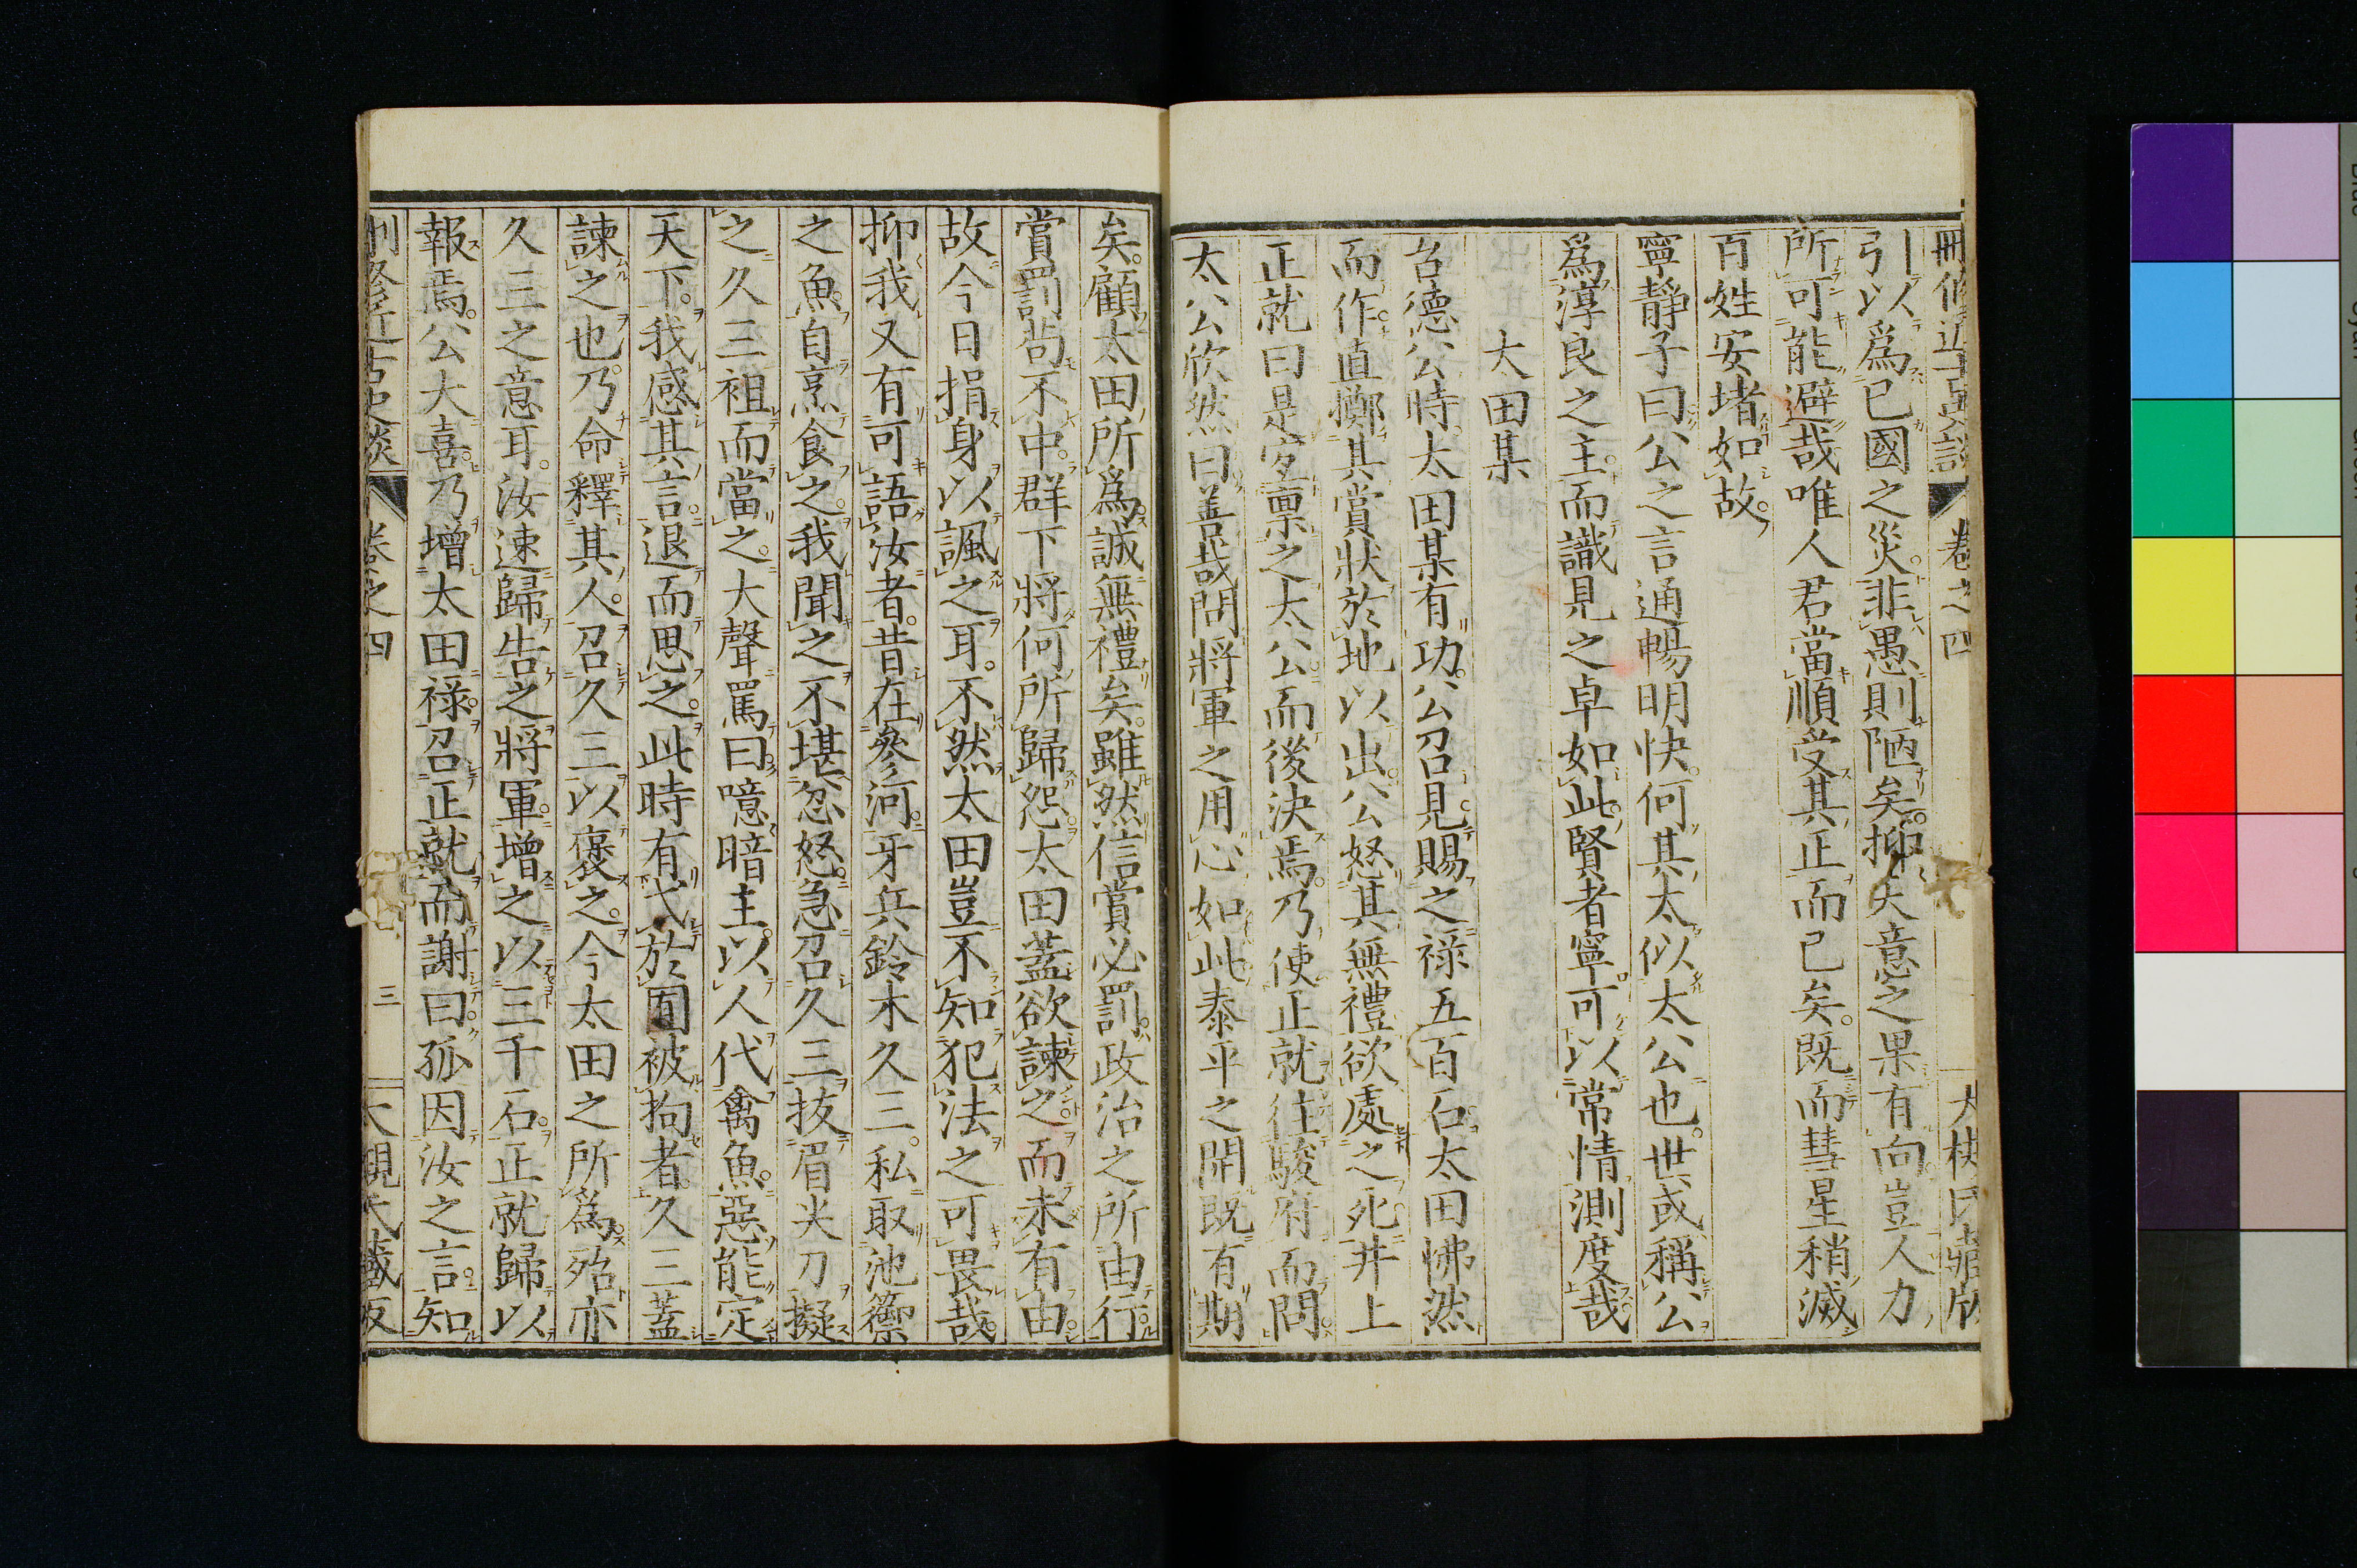 刪修近古史談 卷之四 大槻氏藏版
引以爲已國之災非愚則陋矣抑天意之果有向豈人力
所可能避哉唯人君當順受其正而已矣既而彗星稍滅
百姓安堵如故
寧靜子曰公之言通暢明快何其太似太公也世或稱公
爲淳良之主而識見之卓如此賢者寧可以常情測度哉
大田某
台德公時太田某有功公召見賜之祿五百石太田怫然
而作直擲其賞狀於地以出公怒其無禮欲處之死井上
正就曰是宜稟之太公而後決焉乃使正就往駿府而問
太公欣然曰善哉問將軍之用心如此泰平之開既有期
矣顧太田所爲誠無禮矣雖然信賞必罰政治之所由行
賞罰苟不中群下將何所歸怨太田蓋欲諫之而未有由
故今日捐身以諷之耳不然太田豈不知犯法之可畏哉
抑我又有可語汝者昔在參河牙兵鈴木久三私取池籞
之魚自烹食之我聞之不堪忽怒急召久三拔眉尖刀擬
之久三袒而當之大聲罵曰噫暗主以人代禽魚惡能定
天下我感其言退而思之此時有弋於囿被拘者久三蓋
諫之也乃命釋其人召久三以褒之今太田之所爲殆亦
久三之意耳汝速歸告之將軍增之以三千石正就歸以
報焉公大喜乃增太田祿召正就而謝曰孤因汝之言知
刪修近古史談 卷之四 三 大槻氏藏版